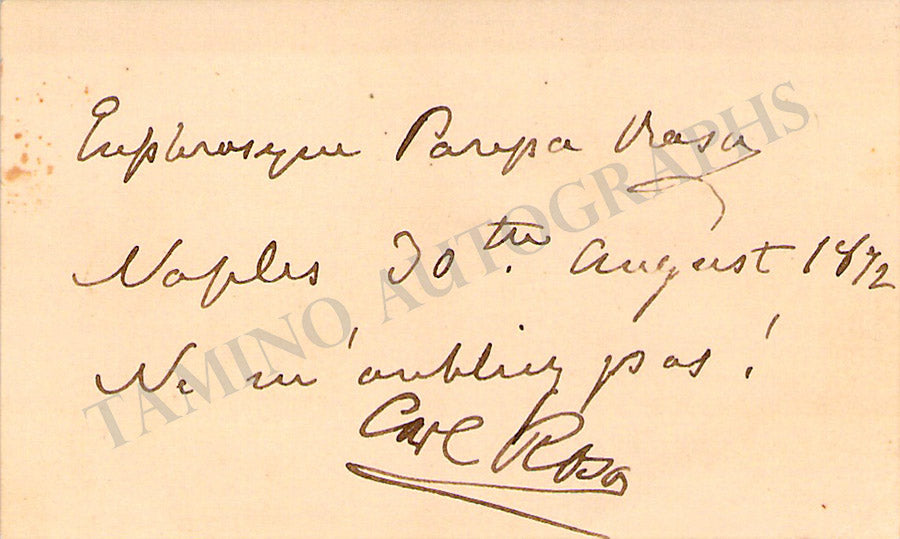 Euphrosyne Parepa Rosa
Naples 30th. August 1872
Ne m'oubliez pas!
Carl Rosa
TAMINO AUTOGRAPHS